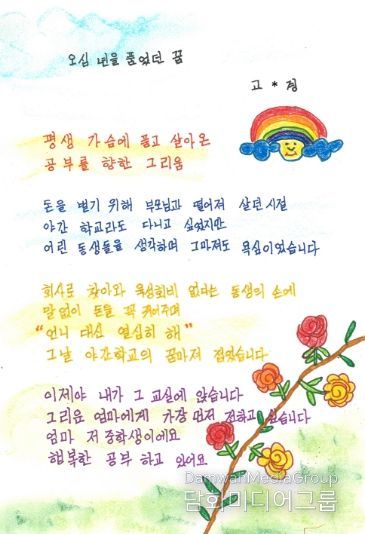 오십 년을 품었던 꿈
고 * 정
평생 가슴에 품고 살아온
공부를 향한 그리움
돈을 벌기 위해 부모님과 떨어져 살던 시절
야간 학교라도 다니고 싶었지만
어린 동생들을 생각하며 그마저도 욕심이었습니다
회사로 찾아와 육성회비 없다는 동생의 손에
말없이 돈을 꼭 쥐어주며
"언니 대신 열심히 해"
그날 야간학교의 꿈마져 접었습니다
이제야 내가 그 교실에 앉습니다
그리운 엄마에게 가장 먼저 전하고 싶습니다
엄마 저 중학생이에요
행복한 공부 하고 있어요
DamwahMediaGroup
담화미디어그룹